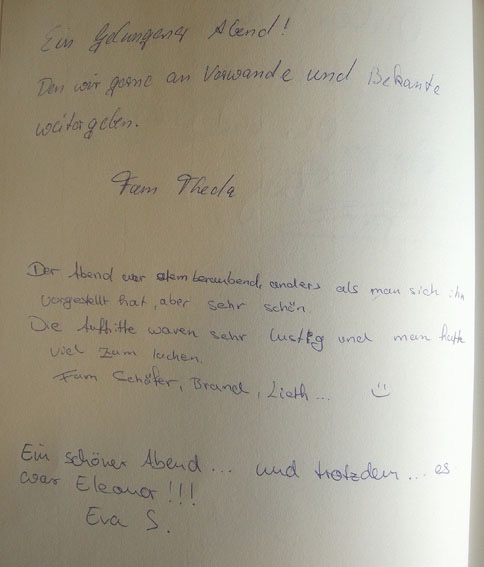 Ein Gelungener Abend!
Den wir gerne an Verwande und Bekante
weitergeben.
Fam Theda
Der Abend war atemberaubend, anders als man sich ihn
vorgestellt hat, aber sehr schön.
Die Auftritte waren sehr lustig und man hatte
viel zum lachen.
Fam Schäfer, Brand, Lieth...
Ein schöner Abend... und trotzdem... es
war Eleonor!!!
Eva S.